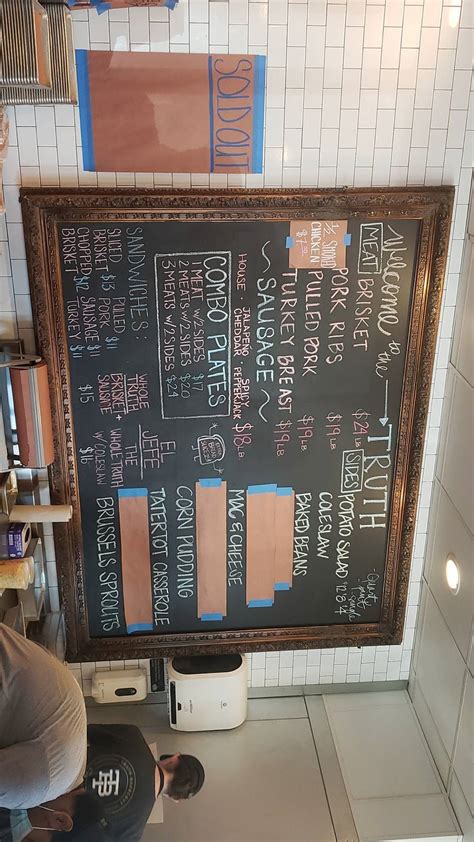 SOLD OUT
Welcome to the TRUTH
MEAT
BRISKET $24 LB
PORK RIBS $19 LB
PULLED PORK $19 LB
TURKEY BREAST $19 LB
~ SAUSAGE ~
HOUSE · JALAPENO CHEDDAR · SPICY PEPPERJACK $18 LB
½ SMOKED CHICKEN $7
COMBO PLATES
1 MEAT W/2 SIDES $17
2 MEATS W/2 SIDES $20
3 MEATS W/2 SIDES $24
SANDWICHES:
SLICED BRISKET $13
CHOPPED BRISKET $12
PULLED PORK $11
SAUSAGE $11
TURKEY $11
EL JEFE
WHOLE TRUTH
BRISKET + SAUSAGE $15
THE WHOLE TRUTH
W/COLESLAW $16
SIDES
Quart pint single
POTATO SALAD 12 8 4
COLESLAW
BAKED BEANS
MAC & CHEESE
CORN PUDDING
TATERTOT CASSEROLE
BRUSSELS SPROUTS
TB